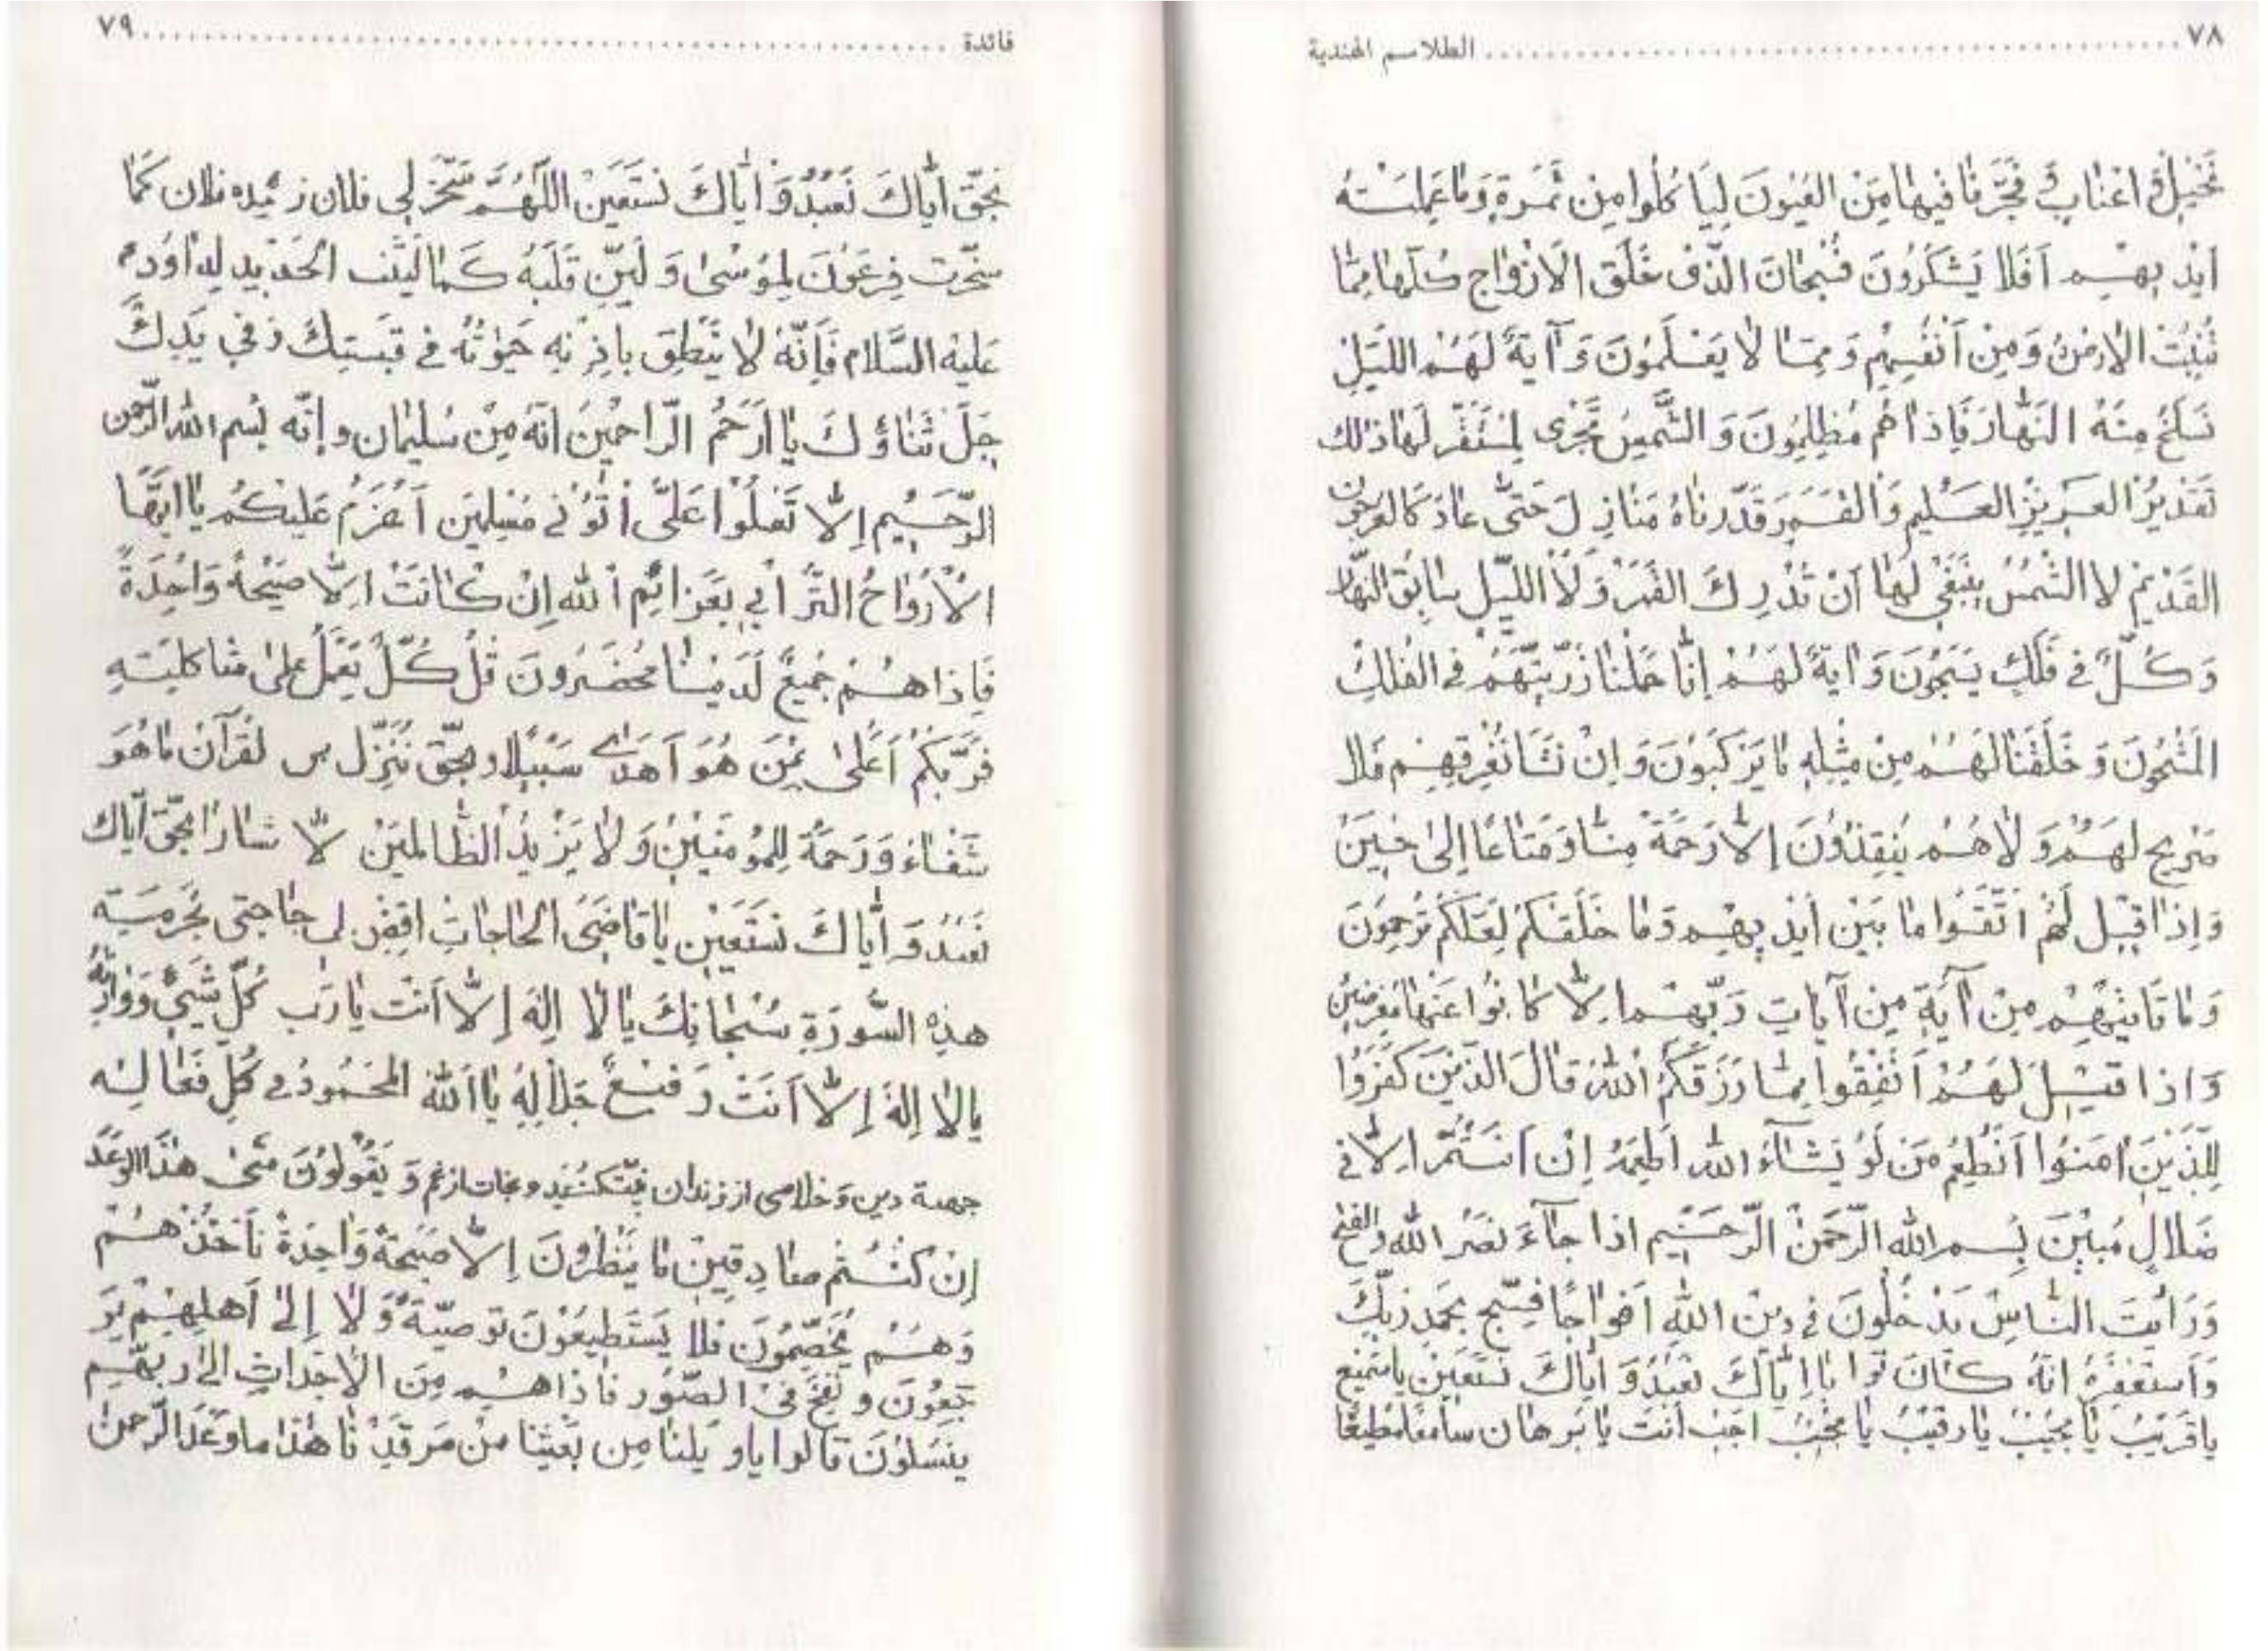 ٧٨ ........ الطلاسم الهندية
نَخيلٍ وَ اعنابٍ وَ فَجَّرنا فيها مِنَ العُيُونَ لِيَا كُلُوا مِن ثَمَرِهِ وَما عَمِلَتْهُ
ايْديهِم اَفَلا يَشكُرُونَ سُبْحانَ الَّذى خَلَقَ الاَزْواجِ كُلّها مِمّا
تُنْبِتُ الارضُ وَمِن اَنْفُسِهِم وَ مِمّا لا يَعْلَمُونَ وَ آيَةٌ لَهُمُ اللَّيْلِ
نَسلَخُ مِنهُ النَهارَ فَاِذا هُم مُظلِمُونَ وَ الشَّمسُ تَجْرى لِمُسْتَقَرِّ لَها ذلك
تَقديرُ العَزيزِ العَليم وَالقَمَر قَدَّرناهُ مَنازِلَ حَتّى عادَ كَالعرجون
القَديم لا الشَّمْسُ يَنْبَغي لَها اَنْ تُدْرِكَ القَمَرَ وَ لاَ اللَّيل سابِقُ النَّهار
وَ كُلٌّ في فَلَكٍ يَسبَحُونَ وَ ايَةٌ لَهُم اِنّا حَمَلنا ذُرِّيَّتَهُم في الفُلكِ
المَشْحُونَ وَ خَلَقْنا لَهُمْ مِنْ مِثْلِهِ ما يَرْكَبُونَ وَ اِنْ نَشَا نُغْرِقهِم فَلا
صَريخَ لهَم وَ لاهُم يُنقِذُونَ اِلاّ رَحمَةً مِنّا وَ مَتاعًا اِلى حينَ
وَ اِذا قيل لَهُم اتَّقُوا ما بَيْن اَيْديهِم وَما خَلفَكُم لَعَلَّكُم تُرحَمونَ
وَ ما تَاتيهِم مِن آيَةٍ مِن آياتِ رَبِّهِم اِلاّ كانُوا عَنها مُعرِضينَ
وَ اذا قيلَ لَهُمْ اَنْفِقُوا مِمّا رَزَقَكُمُ اللهُ قالَ الذّينَ كَفَرُوا
لِلَّذينَ امَنُوا اَنُطعِمُ مَن لَو يَشاءُ الله اَطعَمَهُ اِن اَنْتُمْ اِلاّ في
ضَلالٍ مُبينَ بِسم الله الرَّحمن الرَّحيم اذا جاءَ نَصرُ الله والفتح
وَ رَايتَ النّاسَ يَدخُلُونَ في دين اللهِ اَفواجًا فَسَبِّح بِحَمدِ رَبِّكَ
وَ استَغفِرهُ انّهُ كانَ توابا اِيّاكَ نَعبُدُ وَ ايّاكَ نَستَعين يا سَميع
يا قَريبُ يا مُجيبُ يا رَقيبُ يا مُجيبُ اَجِب اَنتَ يا بَرهان سامعا مطيعا
فائدة ........ ٧٩
بحَقّ ايّاكَ نَعبُدُ وَ ايّاكَ نَستَعين اللّهُمَّ سَخِّر لي فلان زميده فلان كَما
سخّرت فِرعَونَ لِموُسى وَ لَيِّن قَلبَهُ كَما لَيّنت الحَديد لِداوُد
عَليهِ السَّلام فَاِنّهُ لا يَنطِق باِذنِهِ حَيوتُهُ في قبضتِكَ وَ في يَدِكَ
جَلَّ ثَناؤُكَ يا اَرحَمُ الرّاحمينَ انّهُ مِن سُليمان و اِنّه بِسم الله الرّحمن
الرّحيم اِلاّ تَعلُوا عَليَّ وَ اتُوني مُسلِمين اَعزَمُ عَليكُم يا ايّها
الاَرواحُ التُّرابي بِعَزائِم الله اِن كانَت اِلاّ صَيحَةً واحِدَةً
فَاِذا هُم جَميعٌ لَدَينا مُحضَرونَ قُل كُلٌّ يَعمَلُ عَلى شاكلَتِهِ
فَرَبُّكُم اَعلى بِمَن هُوَ اَهدى سَبيلا و بحَقّ نُنَزِّل من لقرآن ما هُوَ
شَفاء وَ رَحمَةٌ لِلمُؤمِنينَ وَ لا يَزيدُ الظّالمينَ لاّ سارا بحَقّ ايّاك
نَعبُدُ وَ ايّاكَ نَستَعين يا قاضيَ الحاجاتِ اقضِ لي حاجتي بحُرمَةِ
هذِهِ السُّورَةِ سُبحانكَ يا لا اِلهَ اِلاّ اَنتَ يا رَب كُلّ شَيءٍ وَ وارِثهُ
يا لا اِلهَ اِلاّ اَنتَ رَفيعٌ جَلالِهُ يا الله المحَمُودُ في كُلّ فَعالِه
جهة دين وَ خلاصى از زندان و نجات از غم وَ يَقُولُونَ مَتى هذَا الوَعدَ
اِن كُنتُم صادِقين ما يَنظُرُونَ اِلاّ صَيحَةً واحِدَةً تَاخُذُهُم
وَ هُم يَخِصِّمُونَ فلا يَستَطيعُونَ توصِيَةً وَ لا اِلى اَهلِهِم يَر
جَعُونَ و نُفِخَ في الصّور فَاذا هُم مِنَ الاَجداثِ الى ربهّم
ينسَلوُنَ قالوا يا ويلَنا مِن بَعَثنا مِن مَرقَدِنا هذا ما وَعَدَ الرَّحمن